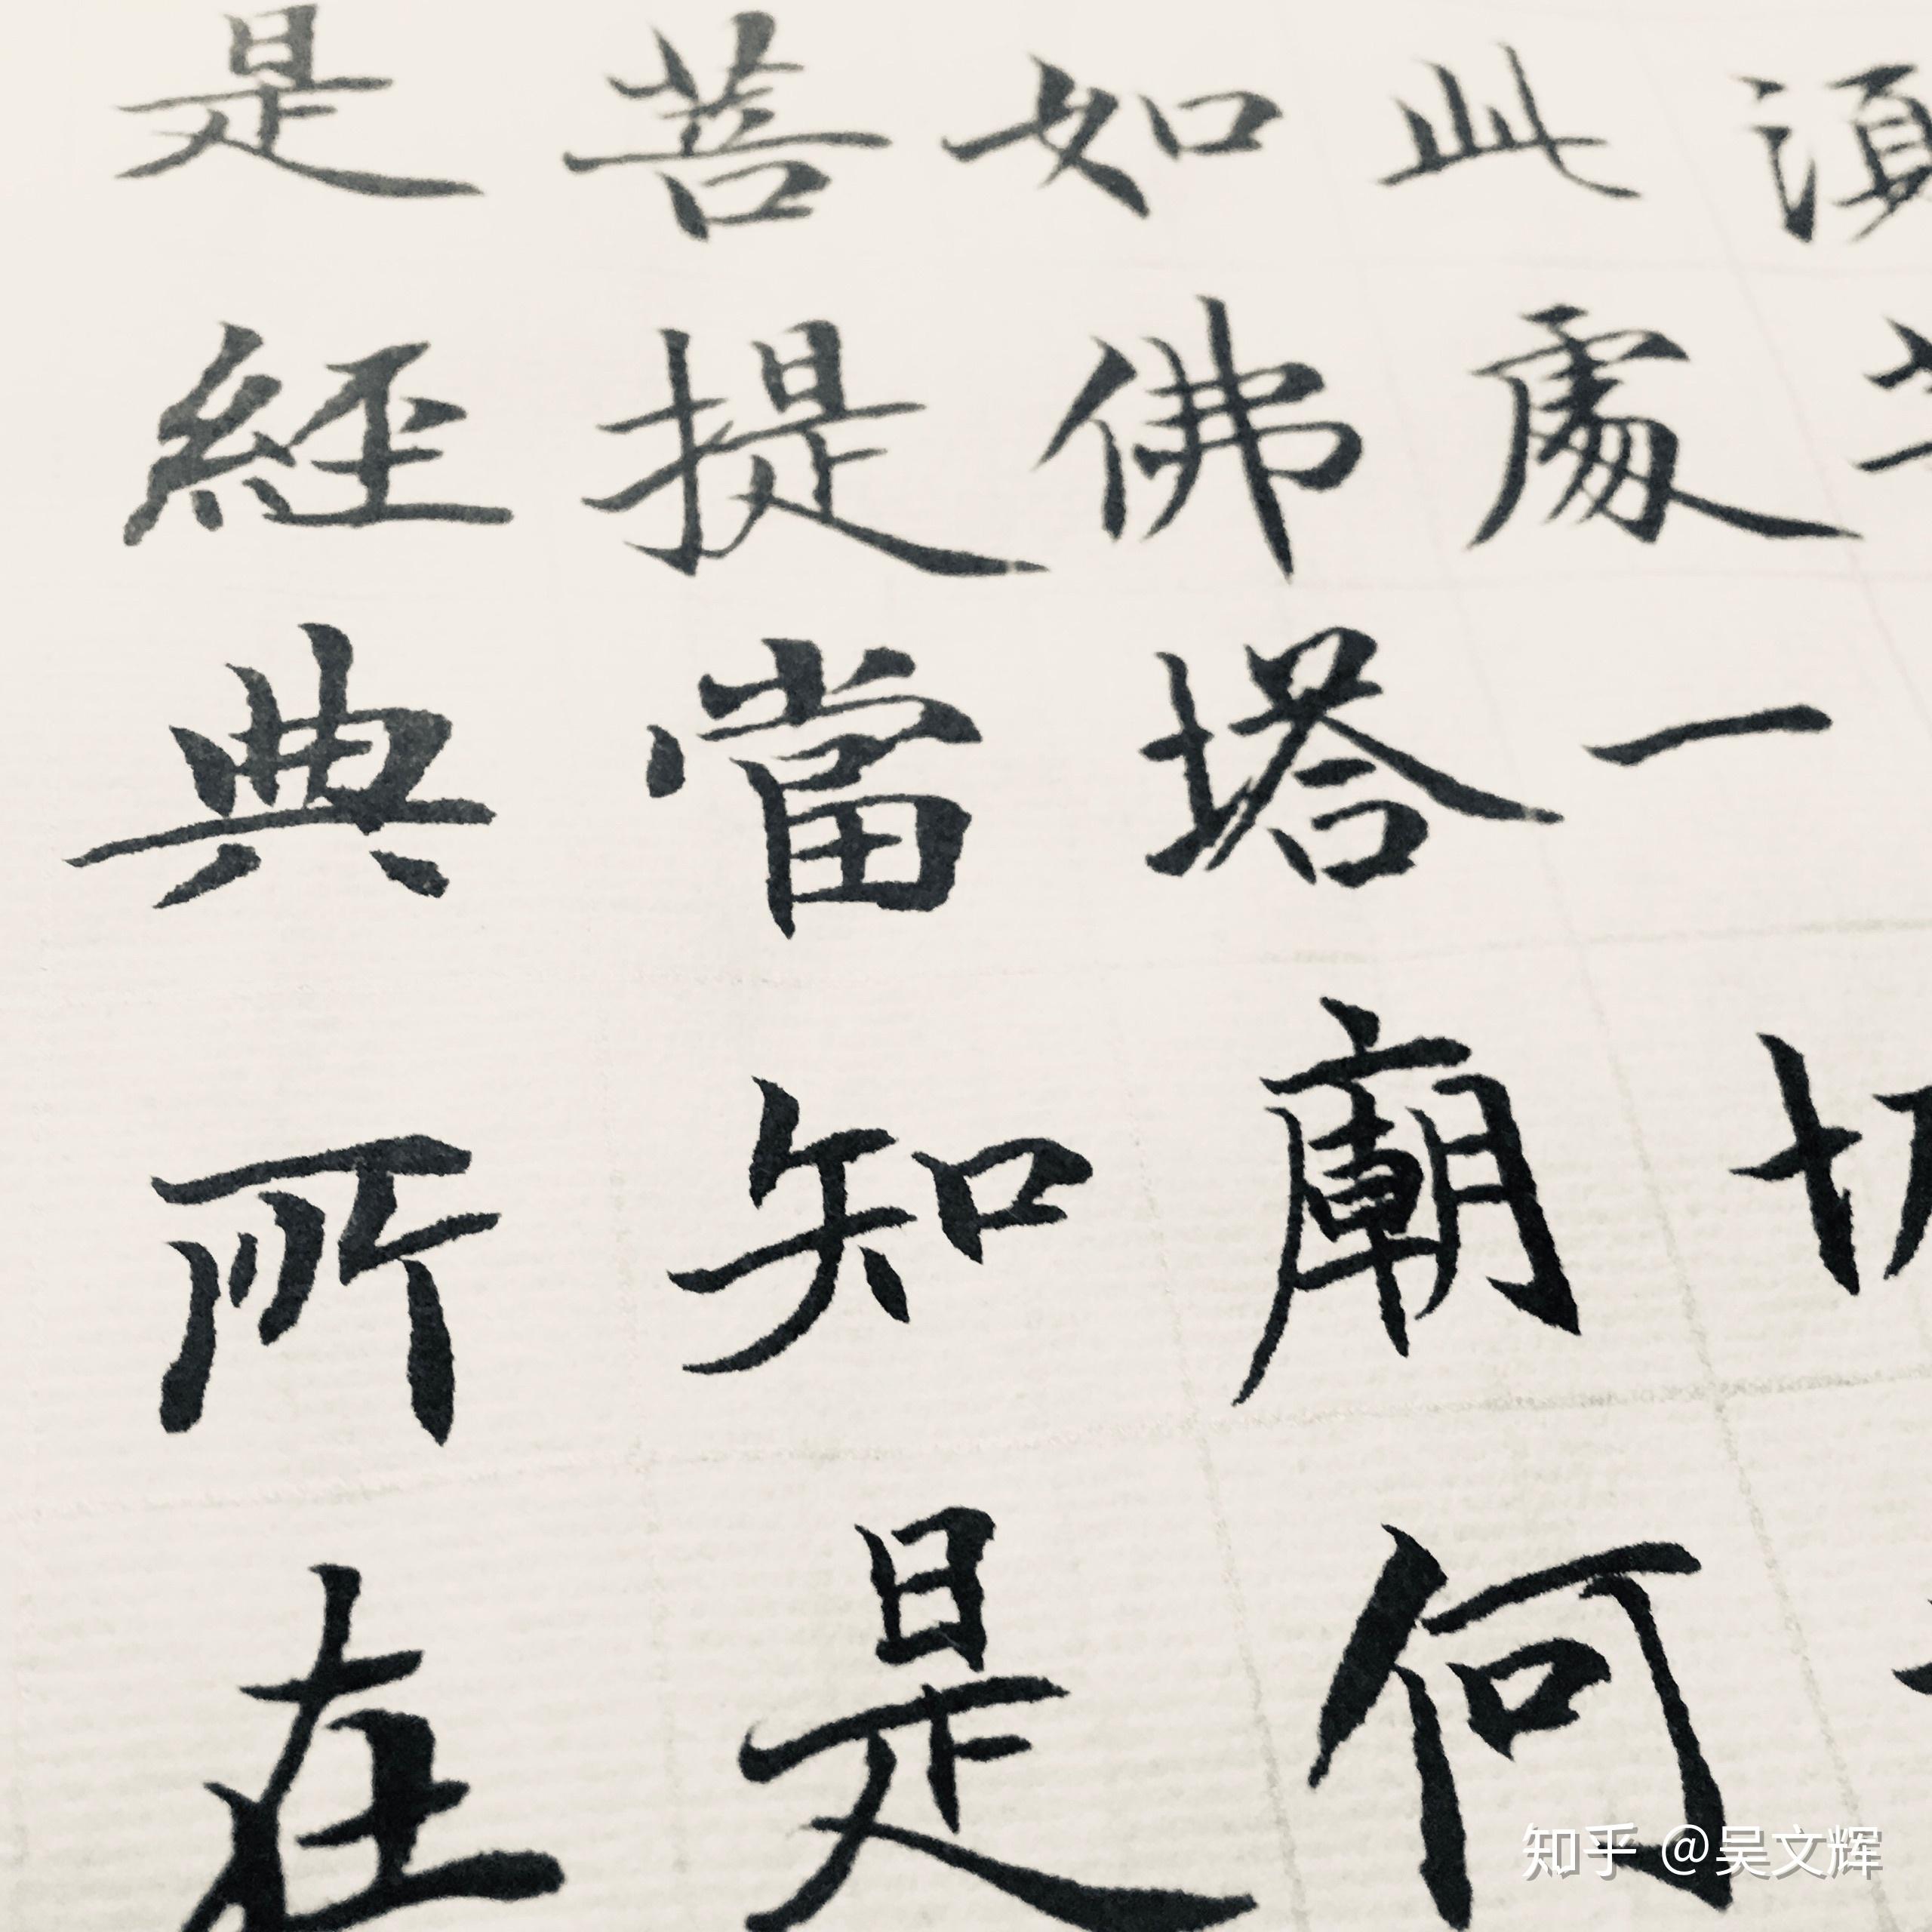 湏
此處一切
如佛塔廟何
菩提當知是
是經典所在
知乎 @吴文辉